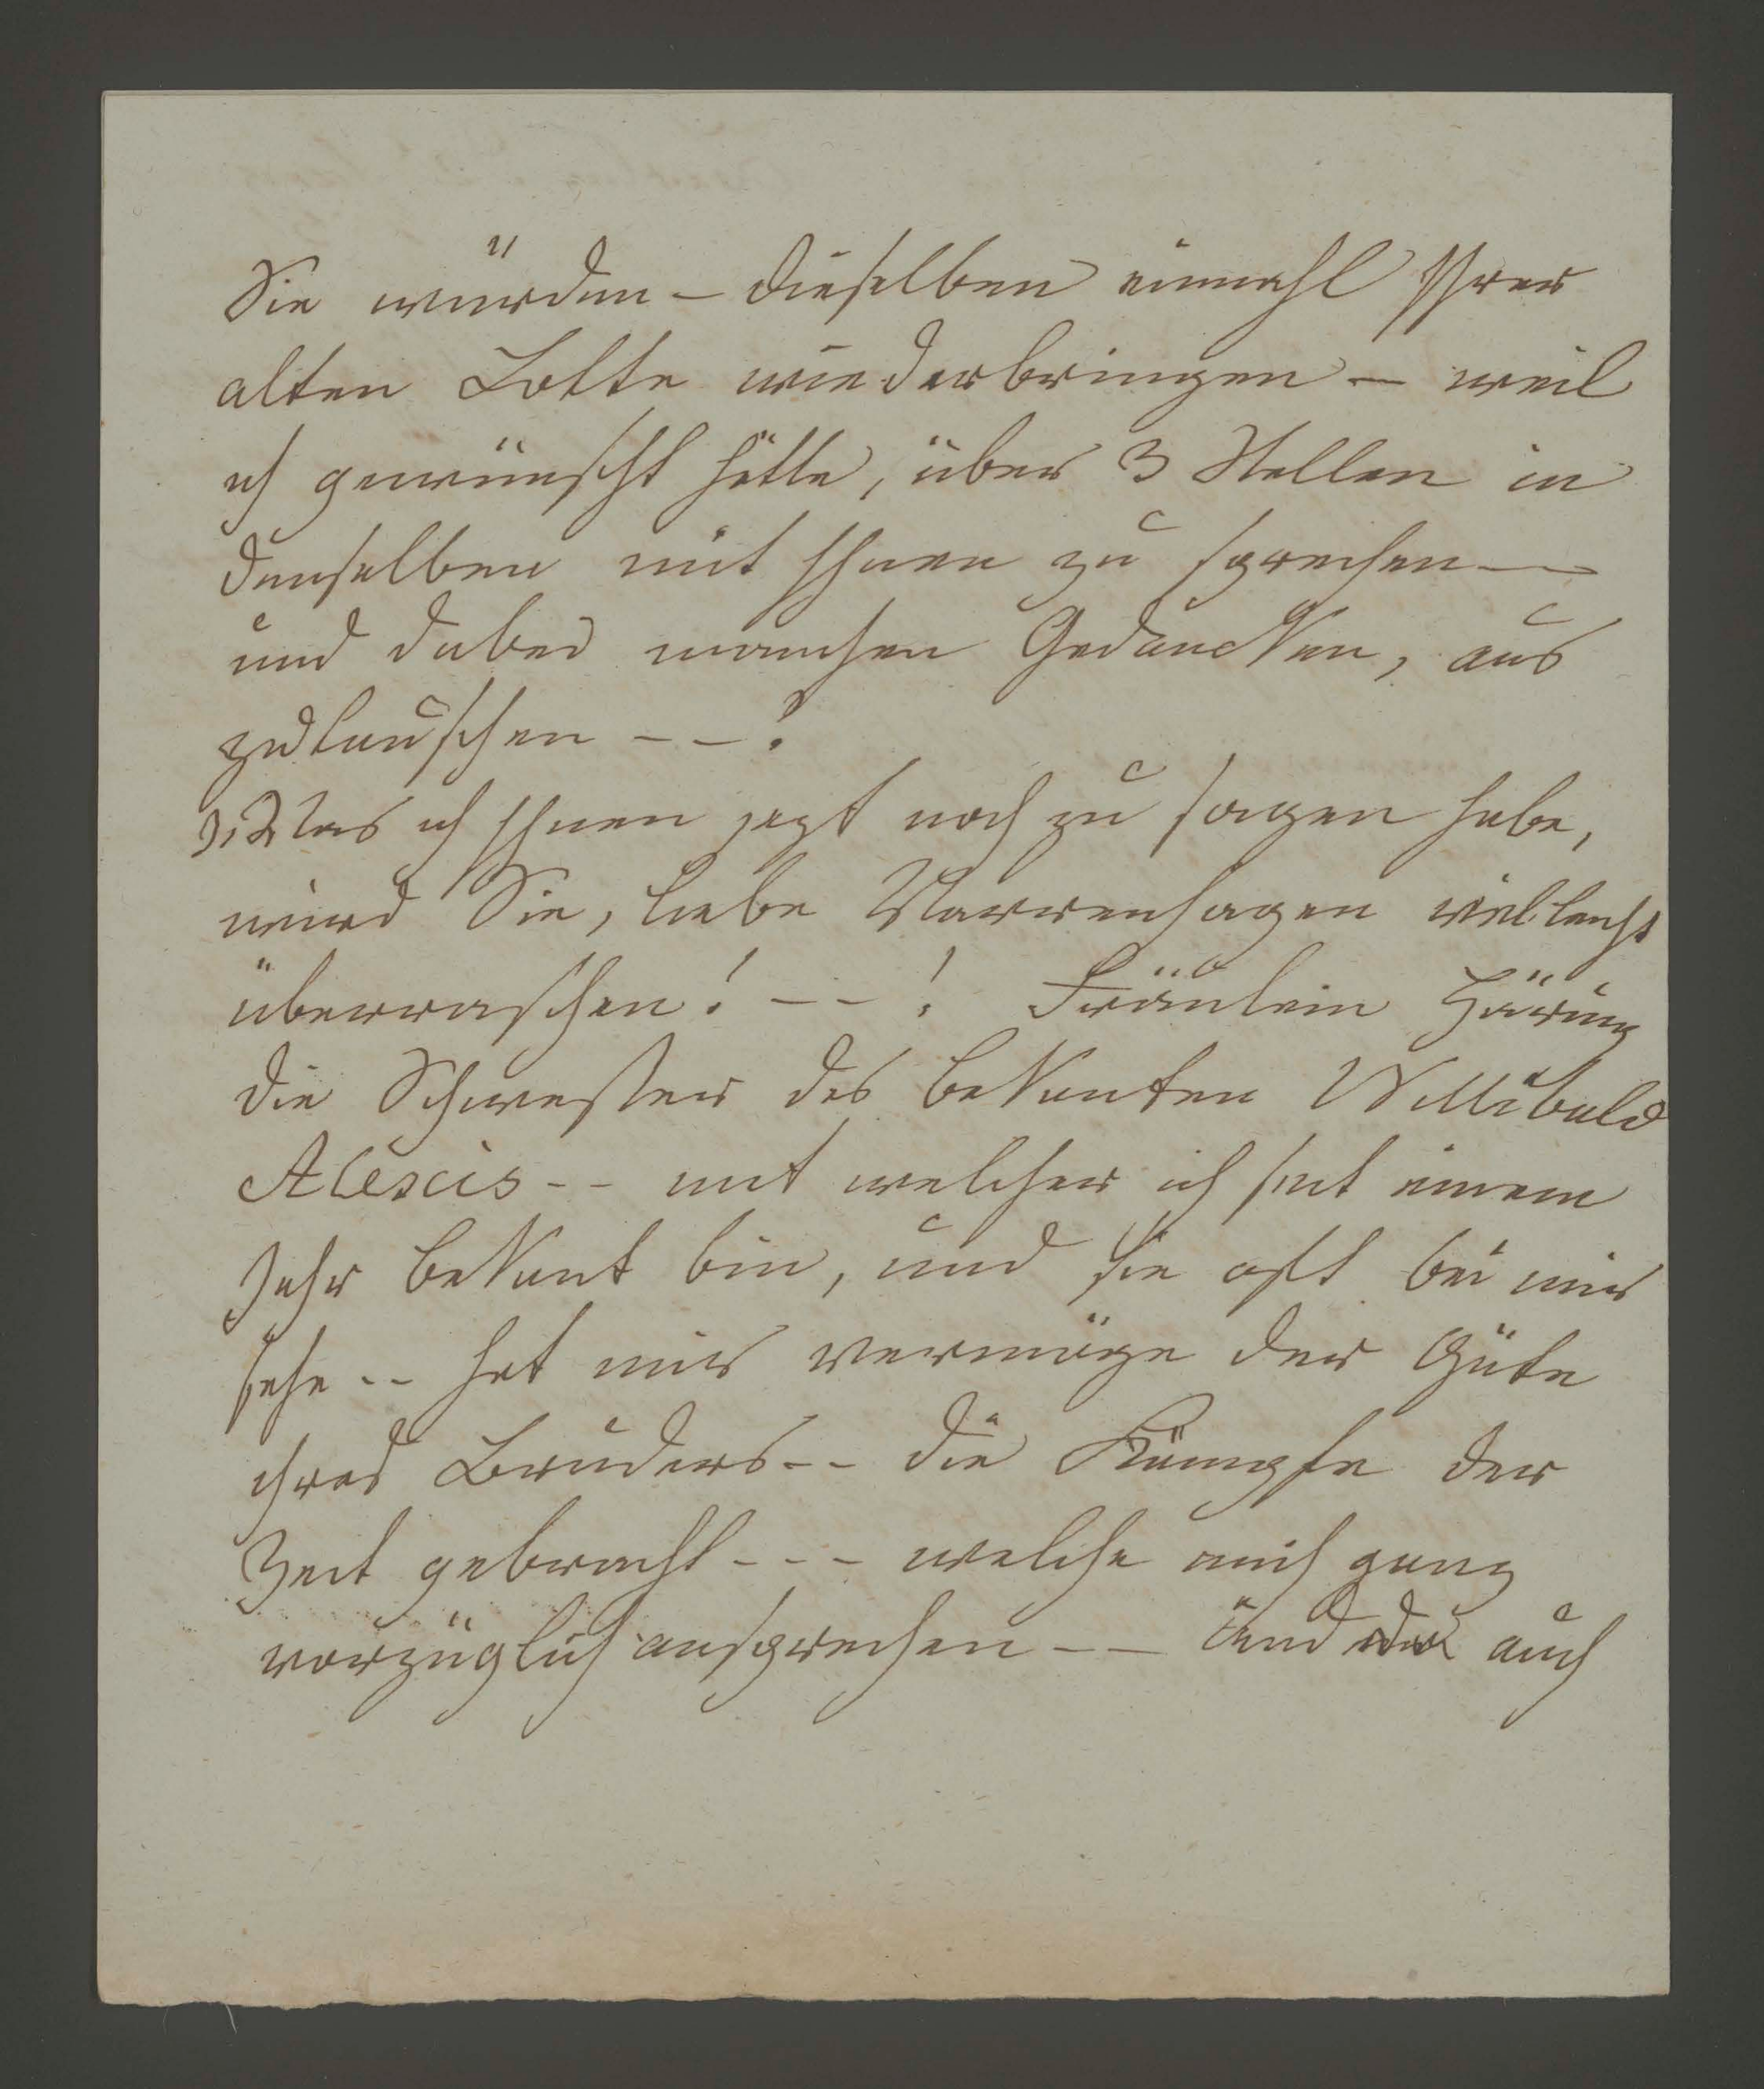 Sie würden – dieselben einmahl Ihrer
alten Lotte wiederbringen – weil
ich gewünscht hätte, über 3 Stellen in
denselben mit Ihnen zu sprechen —
und dabei manchen Gedancken, aus
zutauschen – – !
Was ich Ihnen jezt noch zu sagen habe,
wird Sie, liebe Varrenhagen vielleicht
überraschen! – – ! Fräulein Häring
die Schwester des bekanten Willibald
Alexis – – mit welcher ich seit einem
Jahr bekant bin, und sie oft bei mir
sehe – – hat mir vermöge der Güte
ihres Bruders – – die Kämpfe der
Zeit gebracht – – – welche mich ganz
vorzüglich ansprechen – – und auch